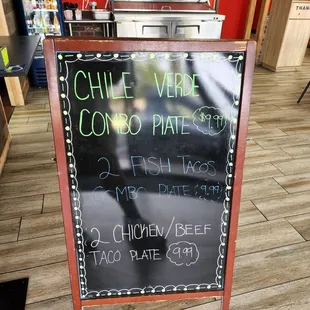 CHILE VERDE
COMBO PLATE $9.99
2 FISH TACOS
COMBO PLATE 9.99
2 CHICKEN/BEEF
TACO PLATE 9.99